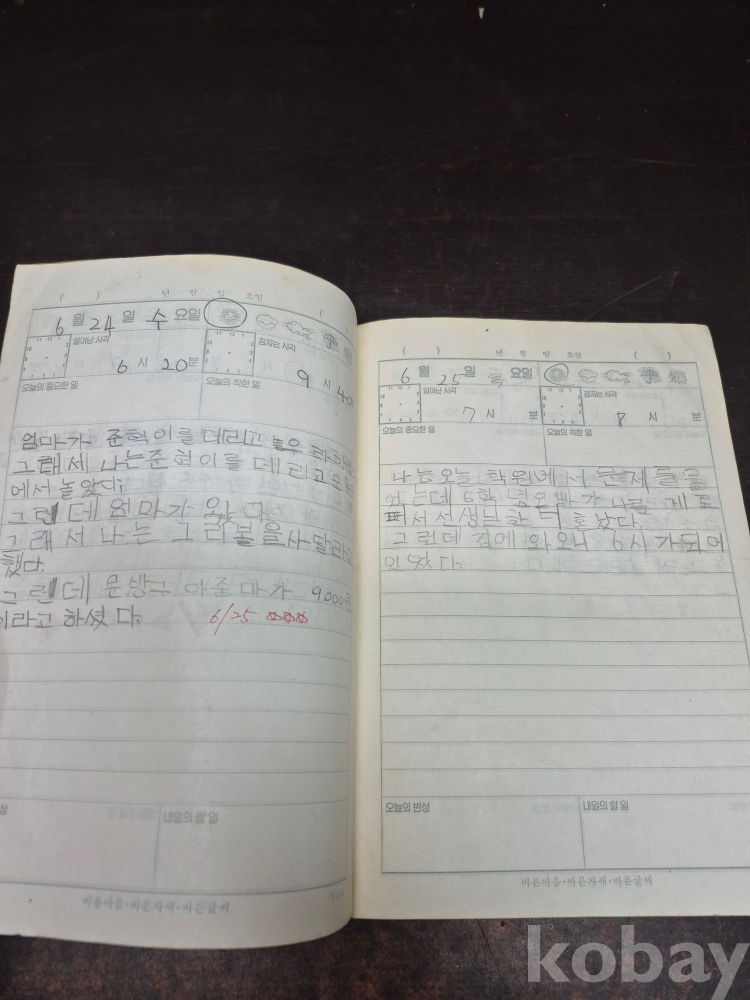 ( ) 년 월 일 요일 ( )
6 월 24 일 수 요일
일어난 시각 6 시 20 분
잠자는 시각 9 시
오늘의 중요한 일
오늘의 착한 일
엄마가 준혁이를 데리고
그래세 나는준혁이를 데리고
에서 놀았다.
그런데 엄마가 왔다
그래서 나는 그리볼을사달라고
했다.
그런데 문방구 아줌마가 9000원
이라고 하셨다. 6/25
내일의 할 일
바른마음·바른자세·바른글씨
( ) 년 월 일 요일 ( )
6 월 25 일 요일
일어난 시각 7 시 분
잠자는 시각 8 시 분
오늘의 중요한 일
오늘의 착한 일
나는오늘 학원에서 문제를
는데 6학년오빠가 나를
서선생님한터 혼났다.
그런데 집에 와오니 6시가되어
있었다.
오늘의 반성
내일의 할 일
바른마음·바른자세·바른글씨
kobay